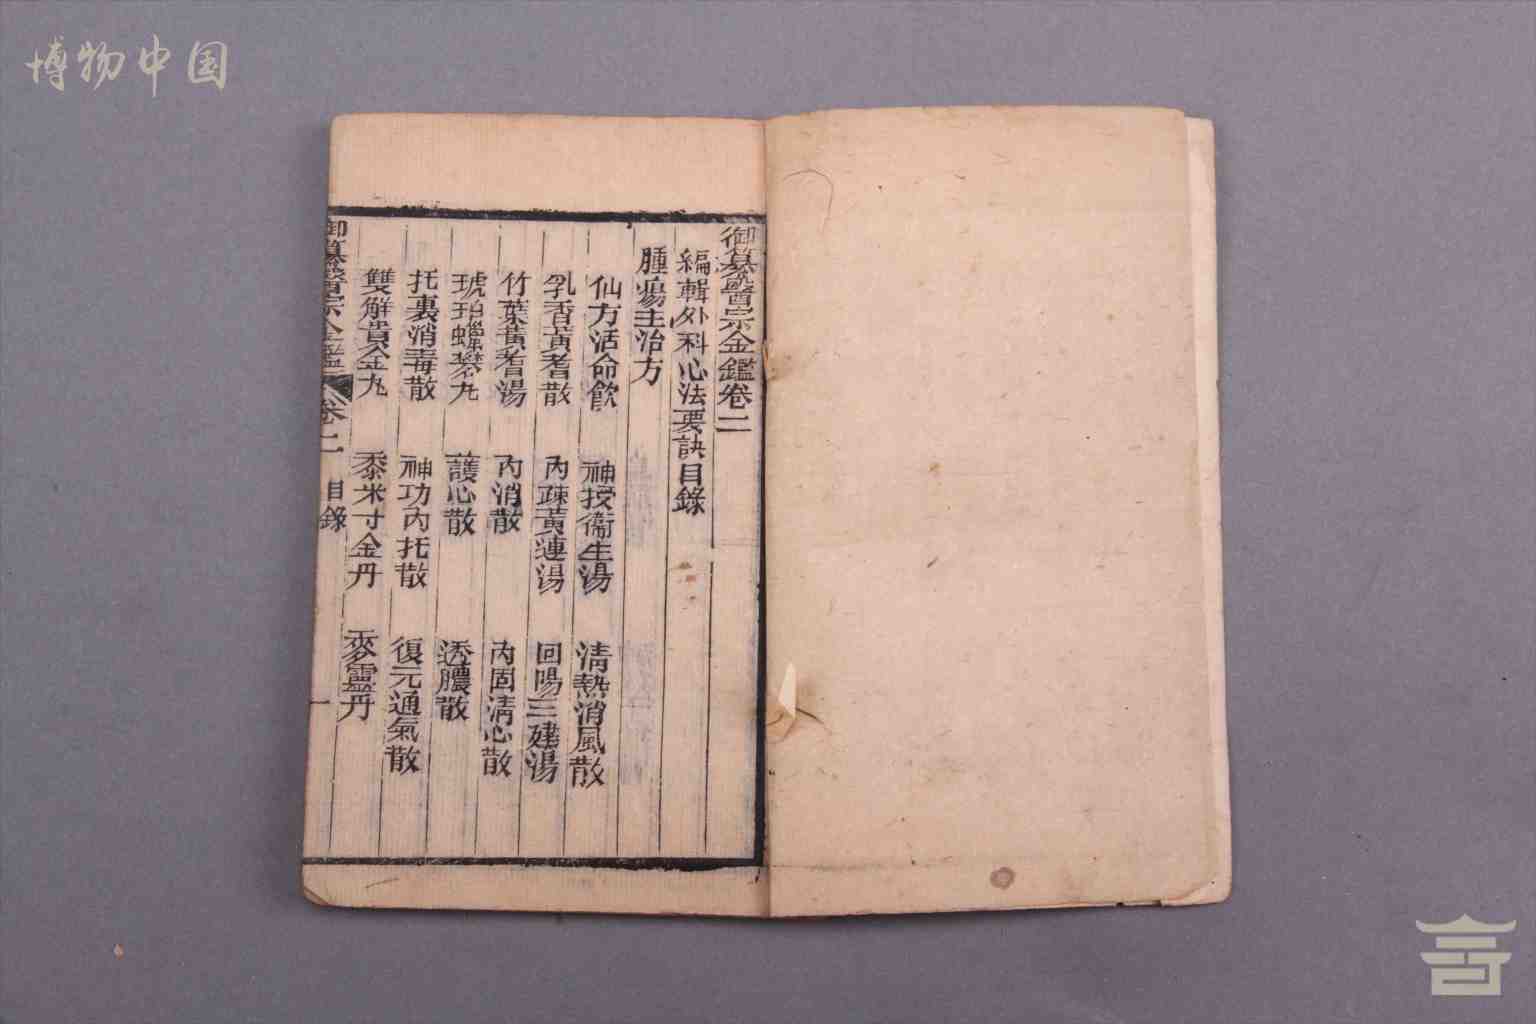 博物中国
御纂醫宗金鑑卷二
編輯外科心法要訣目錄
腫瘍主治方
仙方活命飲 神授衞生湯 清熱消風散
乳香黃耆散 內疎黃連湯 回陽三建湯
竹葉黃耆湯 內消散 內固清心散
琥珀蠟礬丸 護心散 透膿散
托裏消毒散 神功內托散 復元通氣散
雙解貴金丸 黍米寸金丹 麥靈丹
御纂醫宗金鑑 卷二 目錄 一